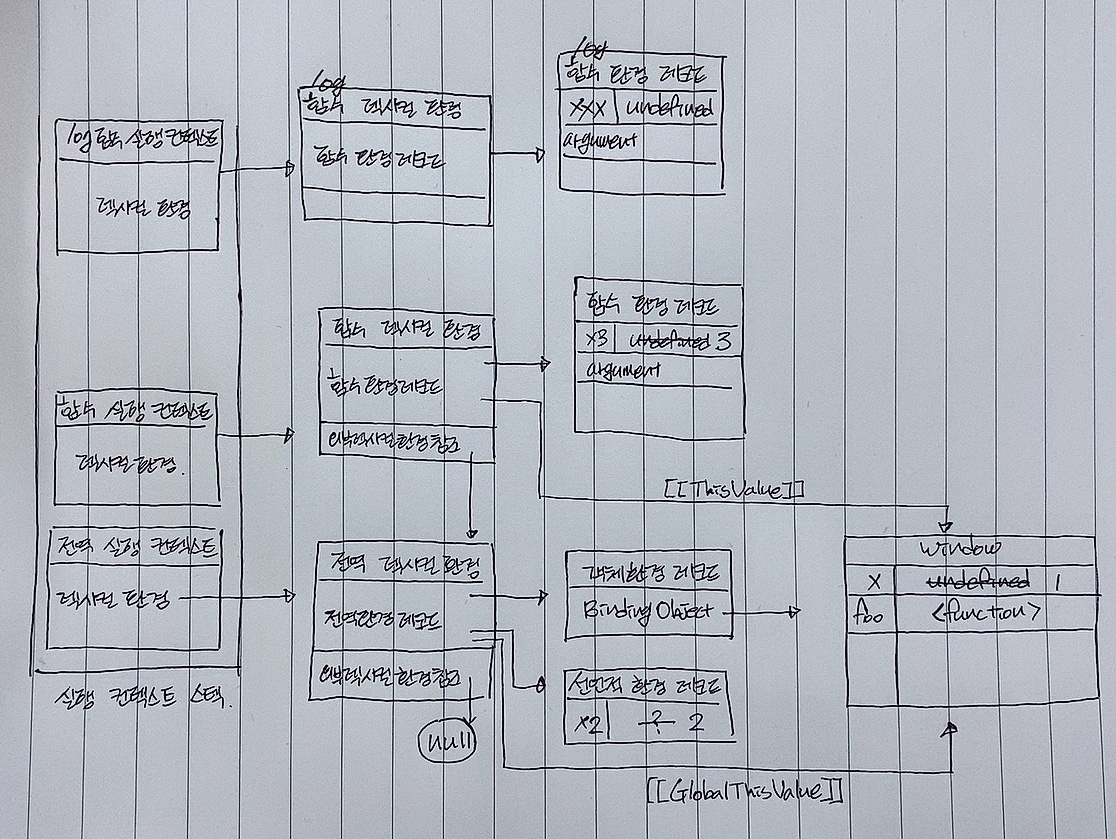 log 함수 실행 컨텍스트
렉시컬 환경
log
함수 렉시컬 환경
함수 환경 레코드
log
함수 환경 레코드
xxx undefined
argument
함수 실행 컨텍스트
렉시컬 환경.
함수 렉시컬 환경
함수 환경 레코드
외부렉시컬환경참조
함수 환경 레코드
x3 undefined 3
argument
[[ThisValue]]
전역 실행 컨텍스트
렉시컬 환경
전역 렉시컬 환경
전역환경 레코드
외부렉시컬환경참조
null
객체 환경 레코드
Binding Object
선언적 환경 레코드
x2 ? 2
window
x undefined 1
foo <function>
[[GlobalThisValue]]
실행 컨텍스트 스택.